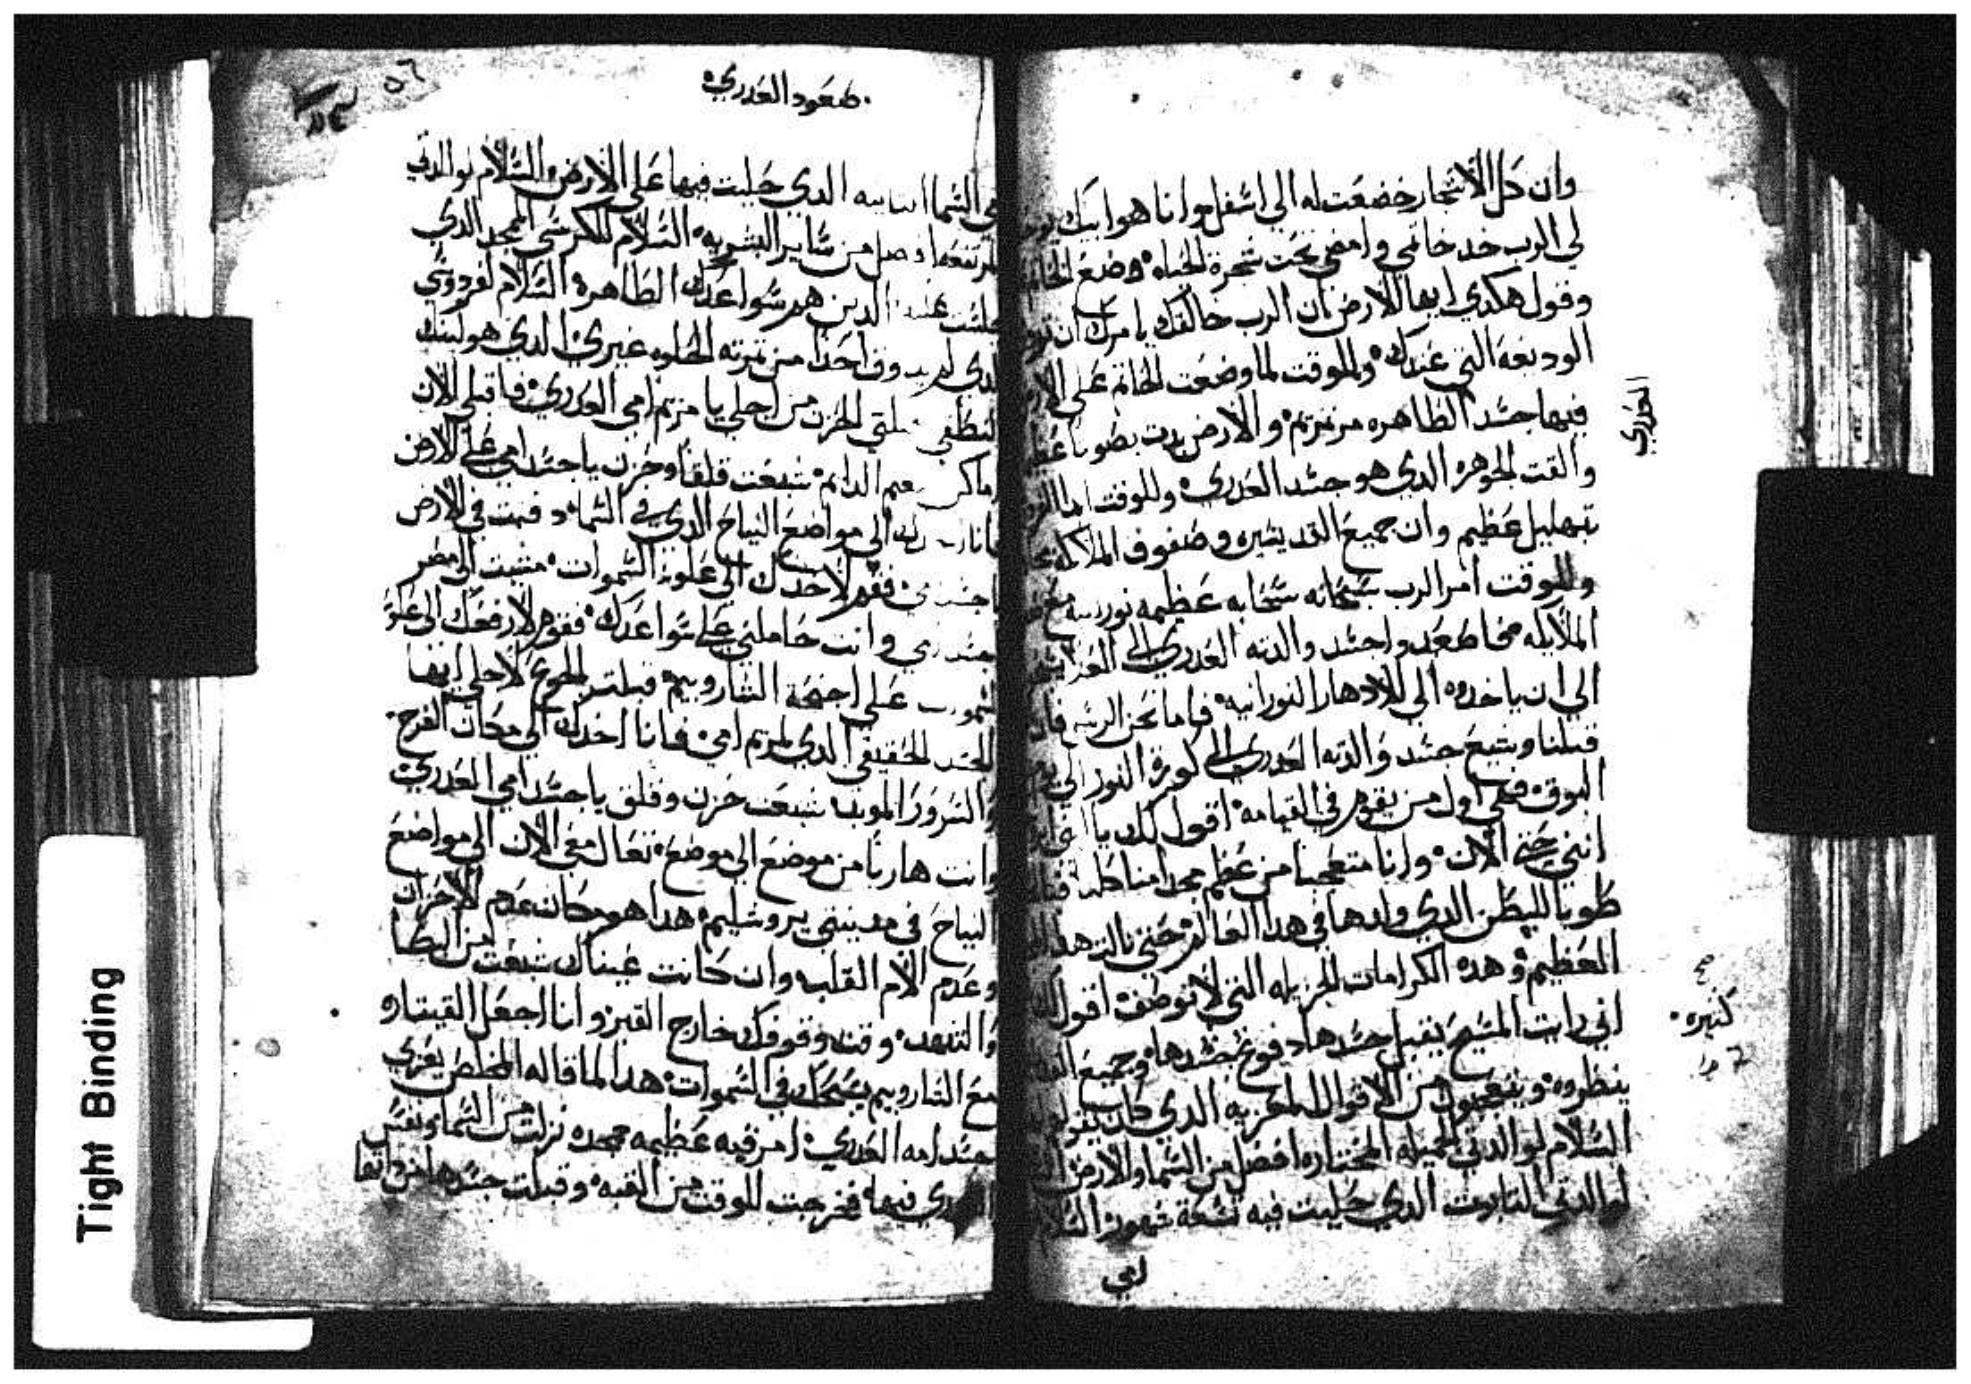 وان كل الاشجار خضعت له الي اسفل وانا هو ابيك
لي الرب خد خاتمي وامضي تحت شجرة الحياه وضع الخاتم
وقول هكدي ايها الارض ان الرب خالقك يامرك ان
الوديعه التي عندك وللوقت لما وضعت الخاتم علي
فيها جسد الطاهره مرتمريم والارض بدت بضو
والقت الجوهره الدي هو جسد العدري وللوقت
تهليل عظيم وان جميع القديسين وصفوف الملايكه
وللوقت امر الرب سبحانه سحابه عظيمه نورانيه
الملايكه فخاطعدوا جسد والدته العدري الي
الي ان ياخدوه الي الادهار النورانيه فاما نحن الرسل
قبلنا وشيع جسد والدته العدري الي كورة النور الي
الموقف فهي اول من يقوم في القيامه اقول لك يا
انني حتي الان وانا متعجبا من عظم مجد امنا
طوبا للبطن الدي ولدها في هدا العالم حتي نالت هدا
العظيم وهده الكرامات الجزيله التي لا توصف اقول
اني رايت المسيح يقبل جسدها دفوع كتيره وجميع
ينظروه ويتعجبون من الاقوال المعزيه الدي كان يقولها
السلام لوالدتي الجميله المختاره افضل من السما والارض
لوالدتي التابوت الدي حليت فيه تسعة شهور السلام
لمي
العدري
كتيره
صعود العدري
٥٦
هي السما التانيه الدي حليت فيها علي الارض السلام لوالدتي
المرتفعه افضل من ساير البشريه السلام للكرسي الممجد الدي
جلست عليه الدين هم سواعدك الطاهره السلام لفردوسي
الدي لم يدوق احدا من تمرته الحلوه غيري الدي هو لبنك
لتطفي الحزن من اجلي يا مريم امي العدري فاقبلي الان
الدايم شبعت قلقا وحزن يا جسد امي علي الارض
الي مواضع النياح الدي في السما فمت في الارض
فقوم لاخدك الي علو السموات مشيت الي مصر
وانت حاملني علي سواعدك فقوم لارفعك الي علو
السموات علي اجنحة الشاروبيم قبلت الجوع لاجلي ايها
الجسد الحقيقي الدي لمريم امي فانا اخدك الي مكان الفرح
والسرور الموبد شبعت حزن وقلق يا جسد امي العدري
وانت هاربا من موضع الي موضع تعال معي الان الي مواضع
النياح في مدينتي يروشليم هدا هو مكان عدم الاحزان
وعدم الام القلب وان كانت عيناك شبعت من البكا
والتنهد وقت وقوفك خارج القبر وانا اجعل القيتاره
مع الشاروبيم يسبحك في السموات هدا لما قاله المخلص يعزي
جسد امه العدري امر قبه عظيمه ممجده نزلت من السما ونفس
العدري فيها فخرجت للوقت من القبه وقبلت جسدها من داتها
Tight Binding